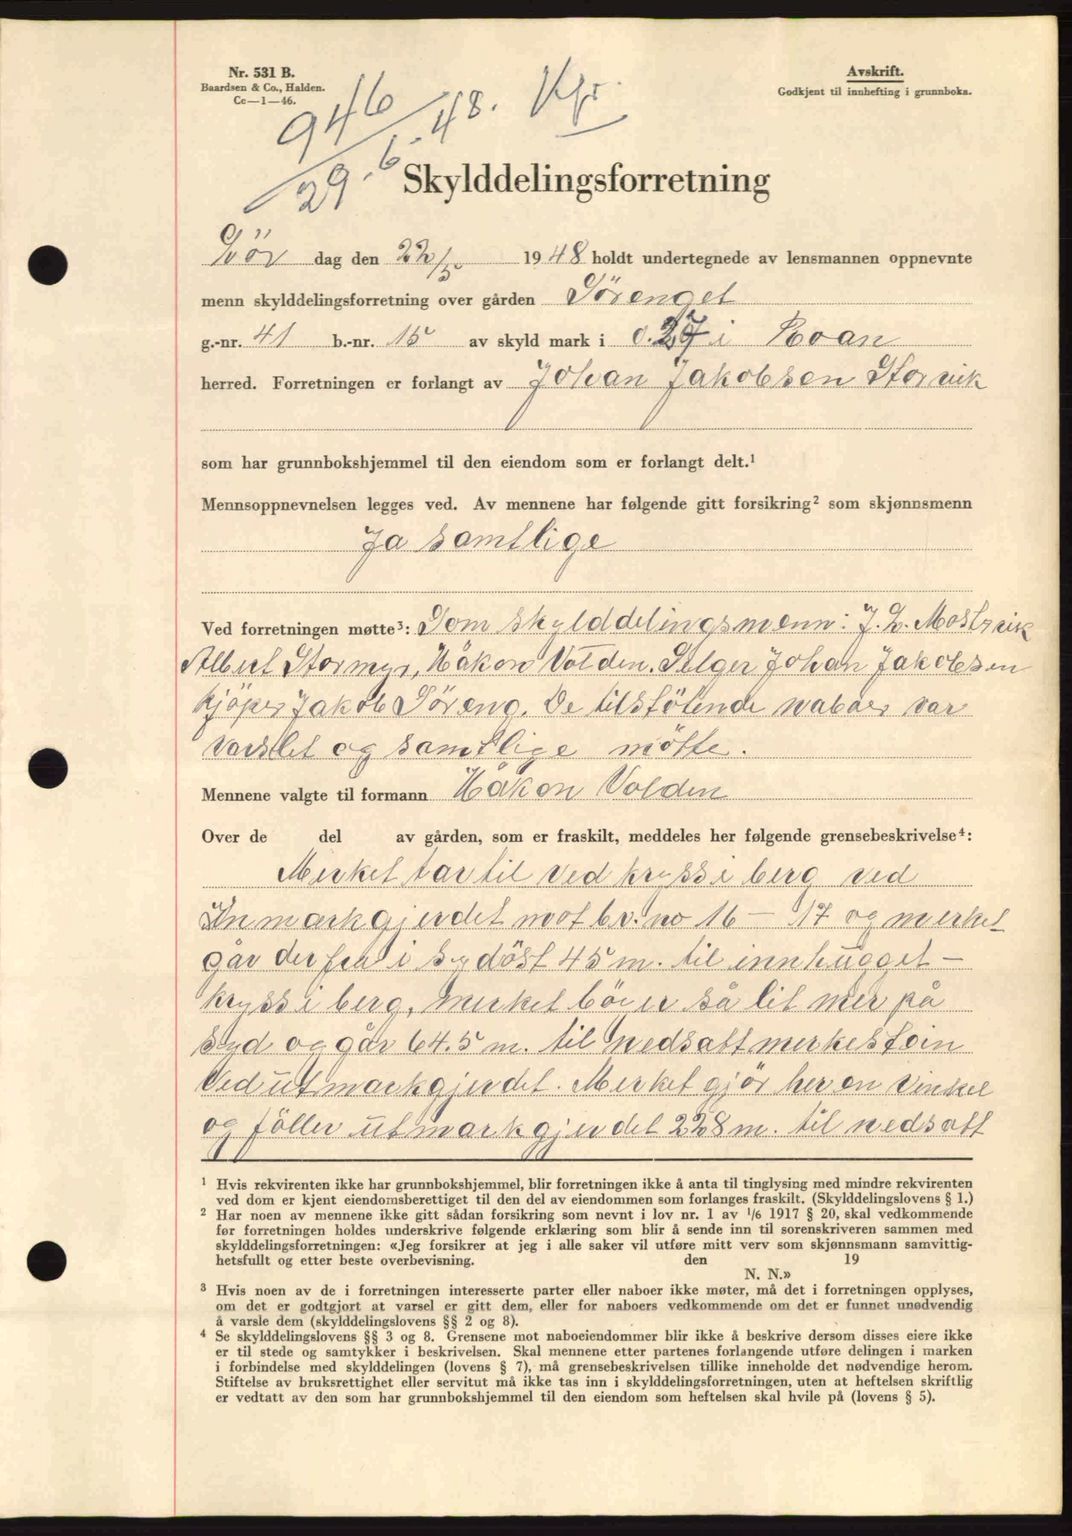 Nr. 531 B.
Baardsen & Co., Halden.
Cc—1—46.
Avskrift.
Godkjent til innhefting i grunnboka.
946
29.-6.-48.
Skylddelingsforretning
Lör dag den 22/5 1948 holdt undertegnede av lensmannen oppnevnte
menn skylddelingsforretning over gården Sörenget
g.-nr. 41 b.-nr. 15 av skyld mark i 0.27 i Roan
herred. Forretningen er forlangt av Johan Jakobsen Storvik
som har grunnbokshjemmel til den eiendom som er forlangt delt.¹
Mennsoppnevnelsen legges ved. Av mennene har følgende gitt forsikring² som skjønnsmenn
Ja samtlige
Ved forretningen møtte³: Som skylddelingsmenn: J. L. Mostervik
Albert Stormyr, Håkon Volden. Selger Johan Jakobsen
Kjöper Jakob Söreng. De tilstötende naboer var
varslet og samtlige mötte.
Mennene valgte til formann Håkon Volden
Over de del av gården, som er fraskilt, meddeles her følgende grensebeskrivelse⁴:
Merket tar til ved kryss i berg ved
Inmarkgjerdet mot br. no 16 — 17 og merket
går derfra i sydöst 45 m. til innhugget-
kryss i berg, merket böier så lit mer på
syd og går 64.5 m. til nedsatt merkestein
ved utmarkgjerdet. Merket gjör her en vinkel
og föller utmarkgjerdet 228 m. til nedsatt
¹ Hvis rekvirenten ikke har grunnbokshjemmel, blir forretningen ikke å anta til tinglysing med mindre rekvirenten
ved dom er kjent eiendomsberettiget til den del av eiendommen som forlanges fraskilt. (Skylddelingslovens § 1.)
² Har noen av mennene ikke gitt sådan forsikring som nevnt i lov nr. 1 av ¹/6 1917 § 20, skal vedkommende
før forretningen holdes underskrive følgende erklæring som blir å sende inn til sorenskriveren sammen med
skylddelingsforretningen: «Jeg forsikrer at jeg i alle saker vil utføre mitt verv som skjønnsmann samvittig-
hetsfullt og etter beste overbevisning. den 19
N. N.»
³ Hvis noen av de i forretningen interesserte parter eller naboer ikke møter, må det i forretningen opplyses,
om det er godtgjort at varsel er gitt dem, eller for naboers vedkommende om det er funnet unødvendig
å varsle dem (skylddelingslovens §§ 2 og 8).
⁴ Se skylddelingslovens §§ 3 og 8. Grensene mot naboeiendommer blir ikke å beskrive dersom disses eiere ikke
er til stede og samtykker i beskrivelsen. Skal mennene etter partenes forlangende utføre delingen i marken
i forbindelse med skylddelingen (lovens § 7), må grensebeskrivelsen tillike inneholde det nødvendige herom.
Stiftelse av bruksrettighet eller servitut må ikke tas inn i skylddelingsforretningen, uten at heftelsen skriftlig
er vedtatt av den som har grunnbokshjemmel til den eiendom som heftelsen skal hvile på (lovens § 5).